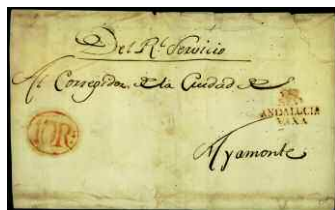 Del Rl. Servicio
Al Corregidor de la Ciudad de
ANDALUCIA
BAXA
Ayamonte